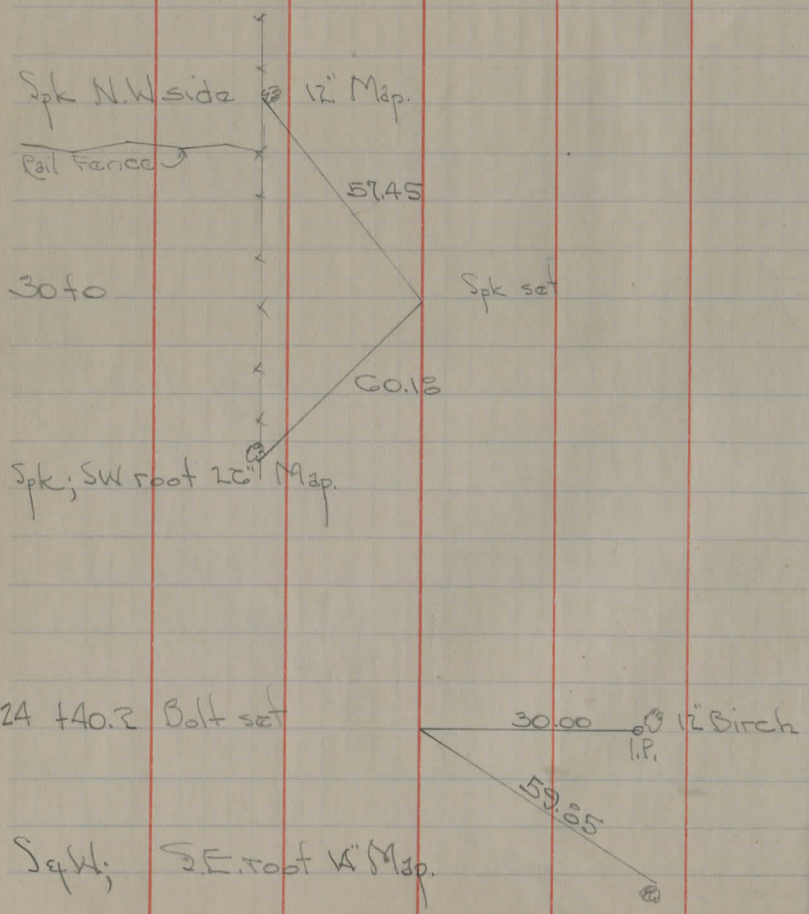 Spk N.W side 12" Map.
Rail Fence
57.45
30+0 Spk set
60.18
Spk; SW root 26" Map.
24 +40.2 Bolt set 30.00 12" Birch
I.P.
59.85
S.E. root 14" Map.